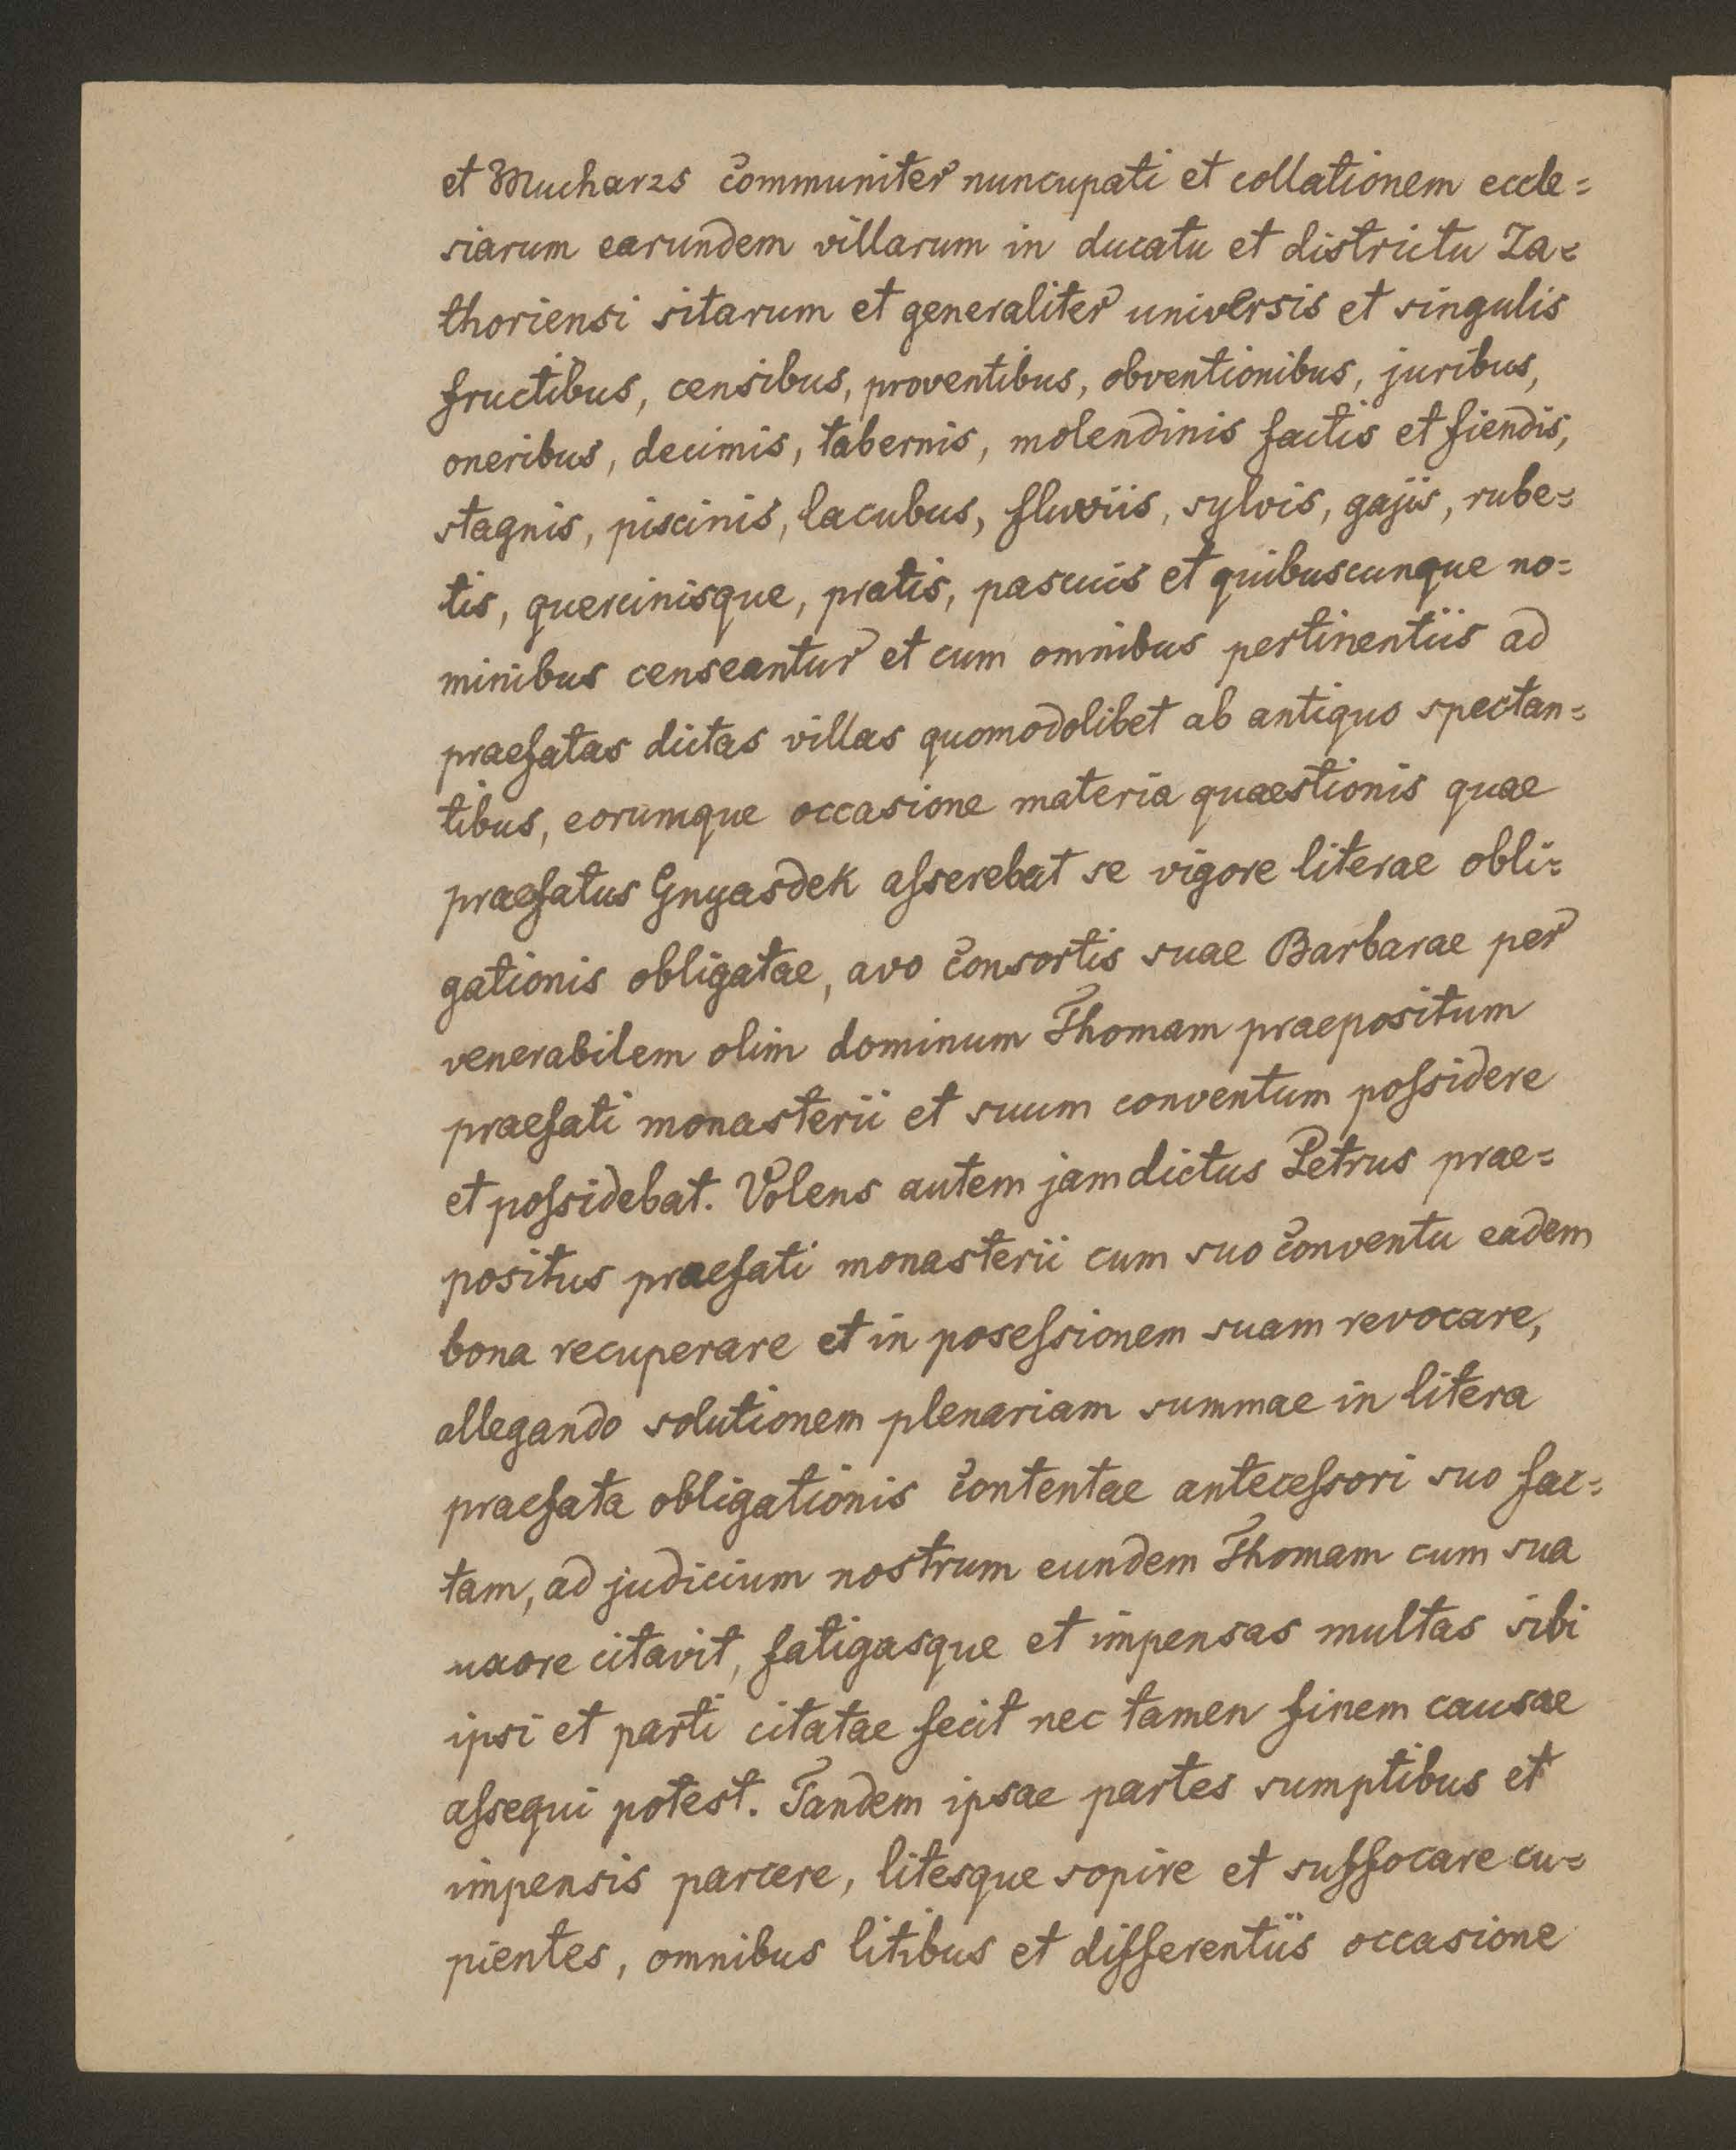 et Mucharzs communiter nuncupati et collationem eccle=
siarum earundem villarum in ducatu et districtu Za=
thoriensi sitarum et generaliter universis et singulis
fructibus, censibus, proventibus, obventionibus, juribus,
oneribus, decimis, tabernis, molendinis factis et fiendis,
stagnis, piscinis, lacubus, fluviis, sylvis, gajis, rube=
tis, quercinisque, pratis, pascuis et quibuscunque no=
minibus censeantur et cum omnibus pertinentiis ad
praefatas dictas villas quomodolibet ab antiquo spectan=
tibus, eorumque occasione materia quaestionis quae
praefatus Gnyasdek aſserebat se vigore literae obli=
gationis obligatae, avo consortis suae Barbarae per
venerabilem olim dominum Thomam praepositum
praefati monasterii et suum conventum poſsidere
et poſsidebat. Volens autem jam dictus Petrus prae=
positus praefati monasterii cum suo conventu eadem
bona recuperare et in poseſsionem suam revocare,
allegando solutionem plenariam summae in litera
praefata obligationis contentae anteceſsori suo fac=
tam, ad judicium nostrum eundem Thomam cum sua
uxore citavit, fatigasque et impensas multas sibi
ipsi et parti citatae fecit nec tamen finem causae
aſsequi potest. Tandem ipsae partes sumptibus et
impensis parcere, litesque sopire et suffocare cu=
pientes, omnibus litibus et differentiis occasione